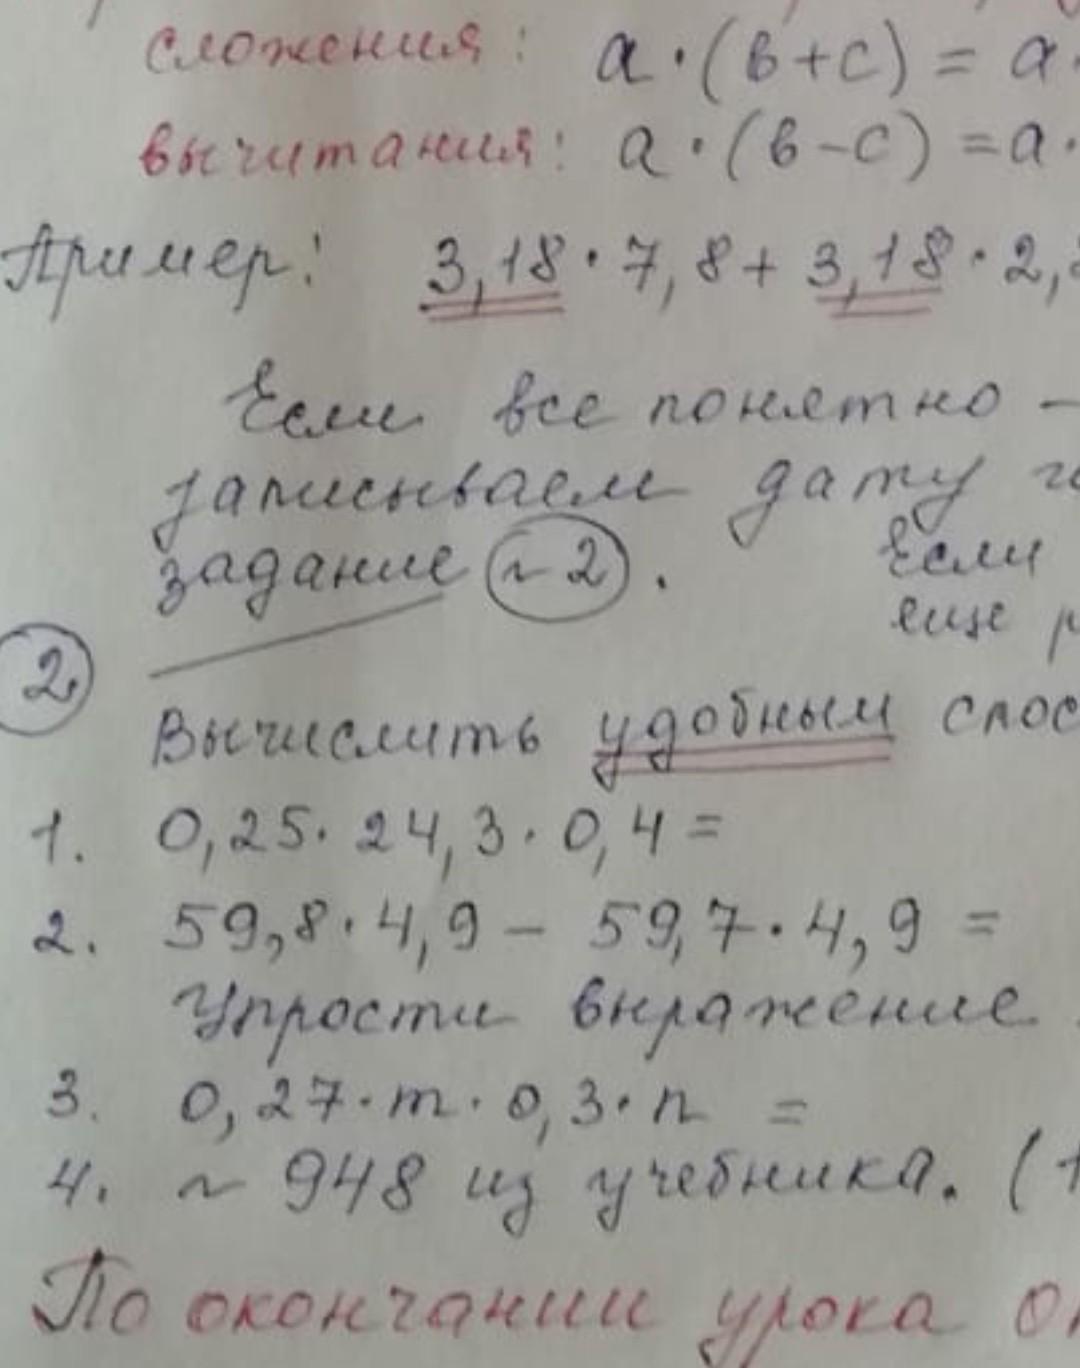 сложения: а·(в+с) = а·
вычитания: а·(в-с) = а·
Пример: 3,18·7,8+3,18·2,
Если все понятно –
записываем дату
задание №2.
Если
еще
2
Вычислить удобным спос
1. 0,25·24,3·0,4=
2. 59,8·4,9 – 59,7·4,9 =
Упрости выражение
3. 0,27·m·0,3·n =
4. № 948 из учебника. (
По окончании урока